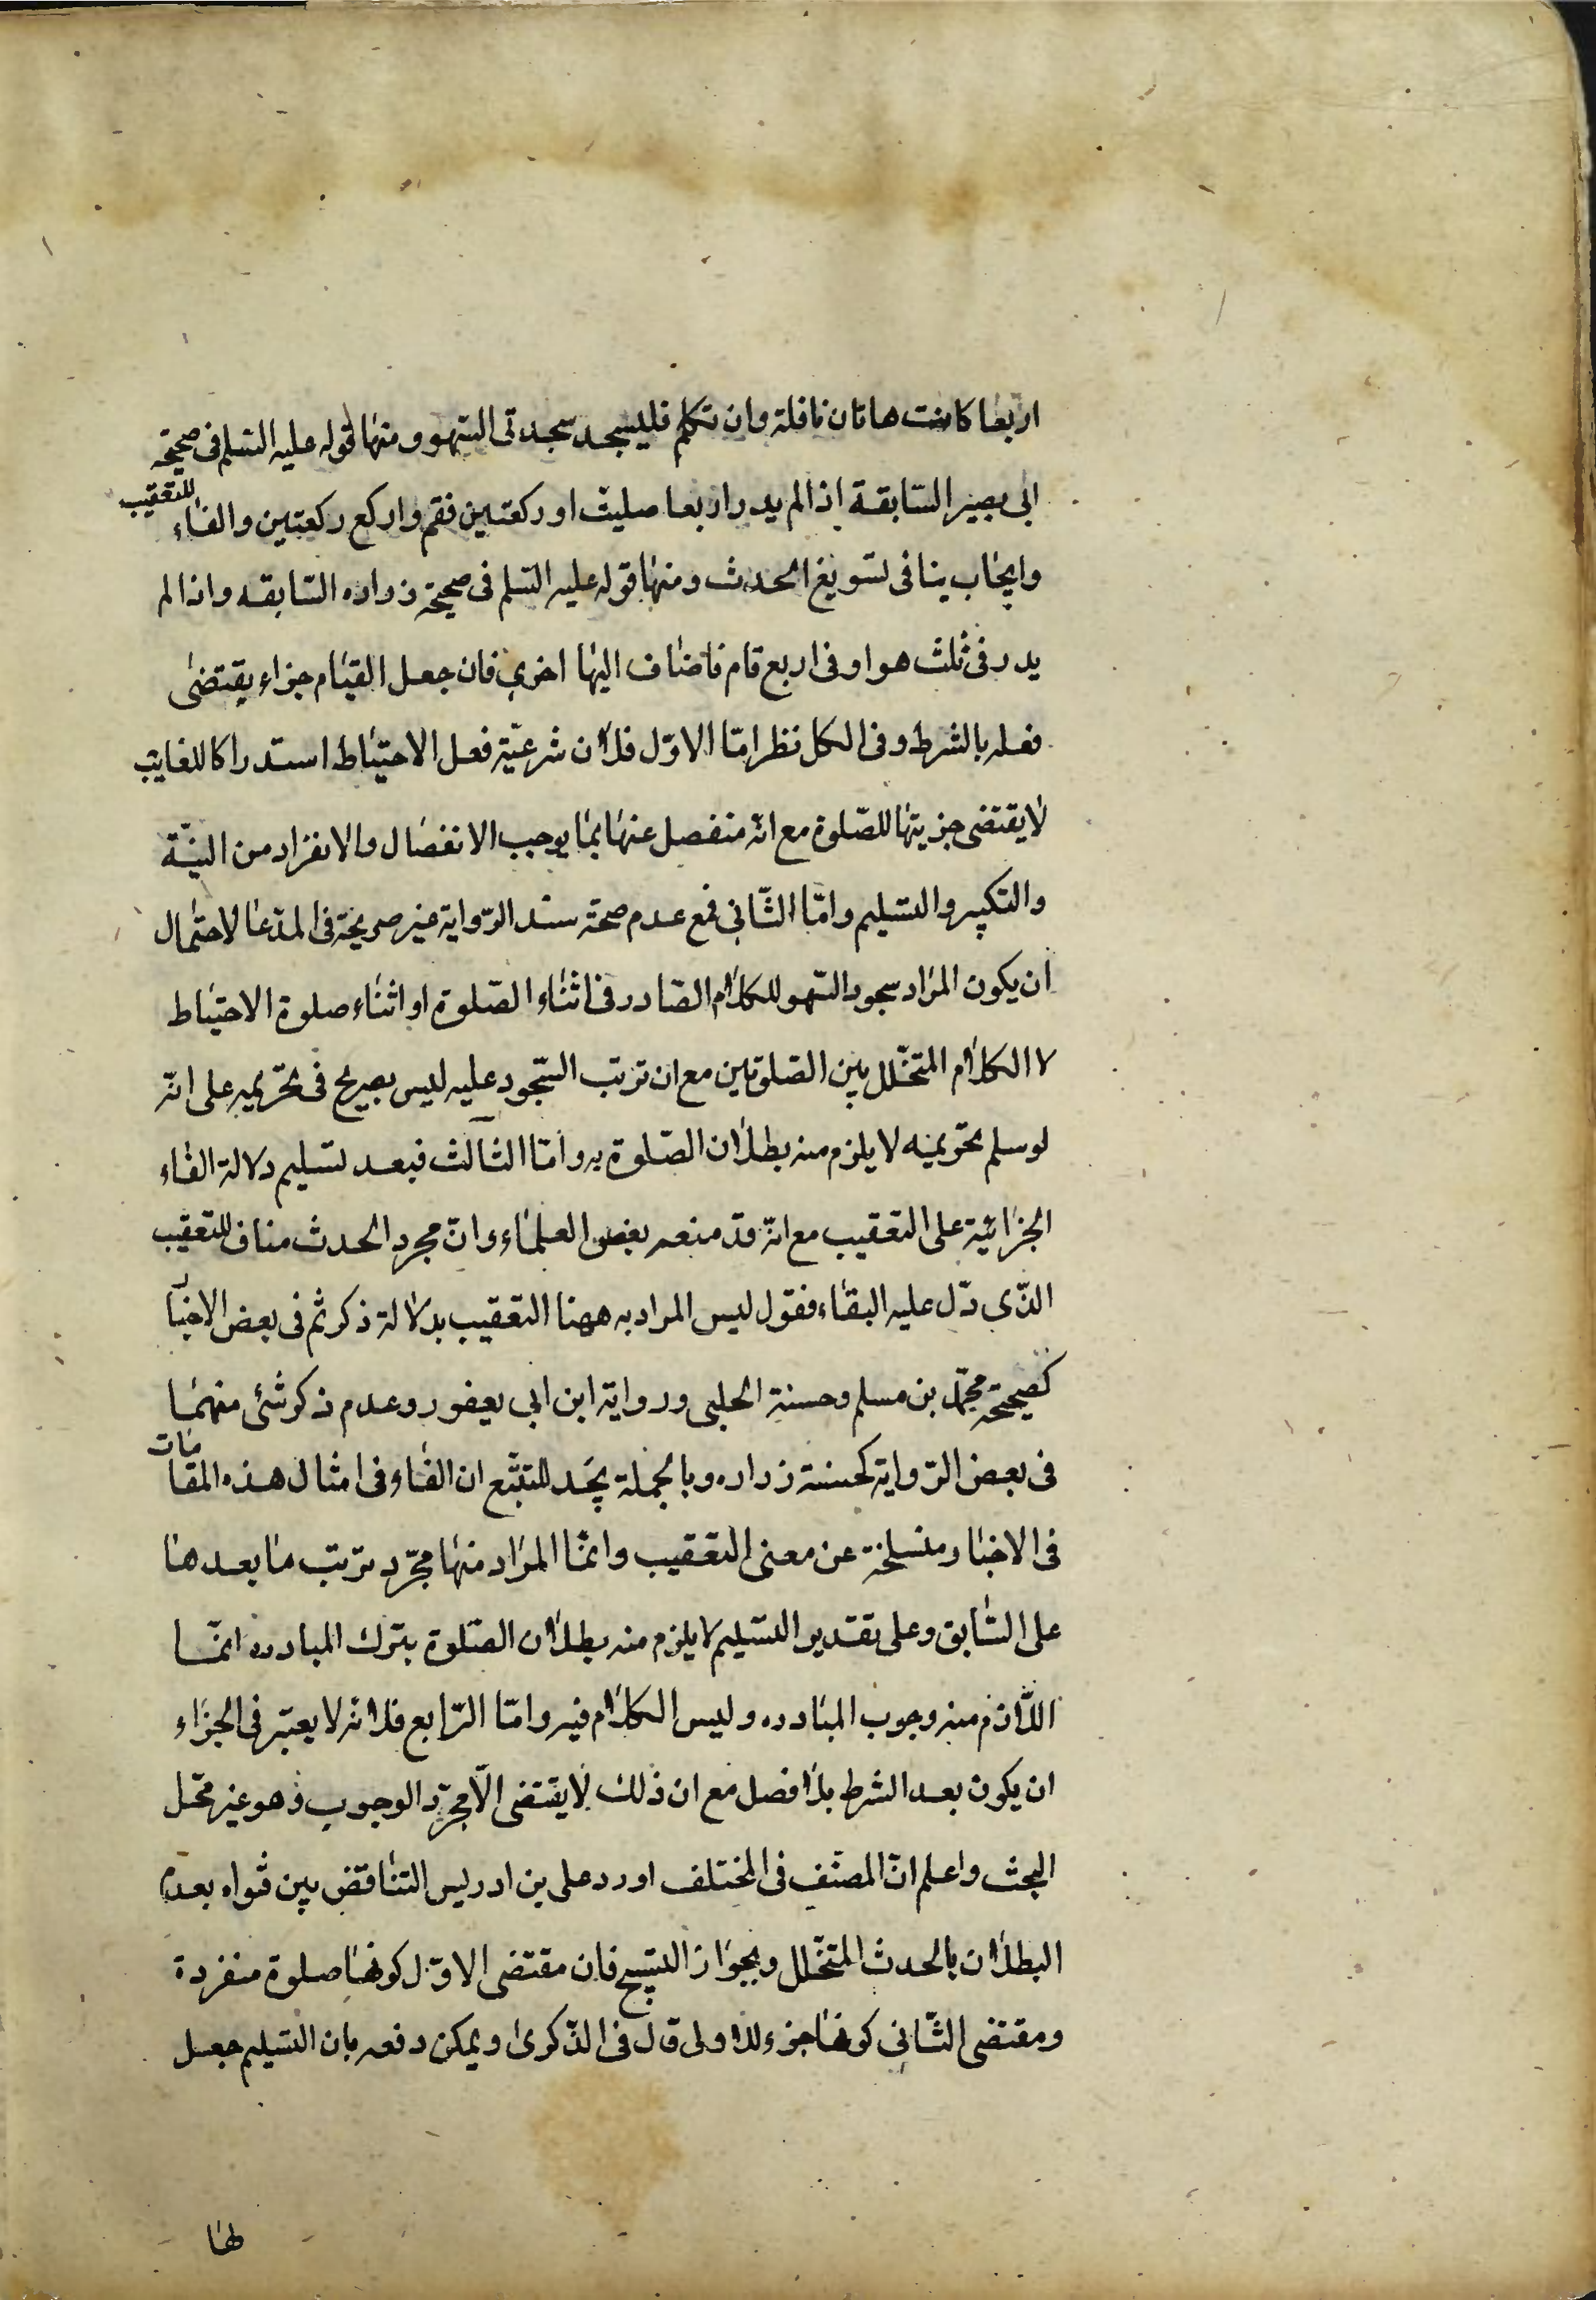 اربعا كانت هاتان نافلة وان تكلم فليسجد سجدتى السهو ومنها قوله عليه السلم فى صحيحة
ابى بصير السابقة اذا لم يدر اربعا صليت او ركعتين فقم واركع ركعتين والفاء للتعقيب
وايجاب ينافى تسويغ الحدث ومنها قوله عليه السلم فى صحيحة زراره السابقه واذا لم
يدر فى ثلث هو او فى اربع قام فاضاف اليها اخرى فان جعل القيام جزاء يقتضى
فعله بالشرط وفى الكل نظر امّا الاوّل فلان شرعيّة فعل الاحتياط استدراكا للفايت
لا يقتضى جزيتها للصّلوة مع انّه منفصل عنها بما يوجب الانفصال والانفراد من النيّة
والتكبير والتسليم وامّا الثّانى فمع عدم صحة سند الرّواية غير صريحة فى المدّعا لاحتمال
ان يكون المراد سجود السّهو للكلام الصّادر فى اثناء الصّلوة او اثناء صلوة الاحتياط
لا الكلام المتخلّل بين الصّلوتين مع ان ترتب السّجود عليه ليس بصريح فى تحريمه على انّه
لو سلم تحريمه لا يلزم منه بطلان الصّلوة به وامّا الثالث فبعد تسليم دلالة الفاء
الجزائيّة على التعقيب مع انّه قد منعه بعض العلماء وانّ مجرد الحدث مناف للتعقيب
الذّى دّل عليه البقاء فنقول ليس المراد به ههنا التعقيب بدلالة ذكر ثم فى بعض الاخبار
كصحيحة محمّد بن مسلم وحسنة الحلبى ورواية ابن ابى يعفور وعدم ذكر شئ منهما
فى بعض الرّواية كحسنة زراره وبالجملة يجد المتتبّع ان الفاء فى امثال هذه المقامات
فى الاخبار منسلخة عن معنى التعقيب وانمّا المراد منها مجرّد ترتب ما بعدها
على السّابق وعلى تقدير التسليم لا يلزم منه بطلان الصّلوة بترك المبادره انمّا
اللّازم منه وجوب المبادره وليس الكلام فيه وامّا الرّابع فلانّه لا يعتبر فى الجزاء
ان يكون بعد الشرط بلا فصل مع ان ذلك لا يقتضى الّا مجرّد الوجوب وهو غير محّل
البحث واعلم انّ المصنّف فى المختلف اورد على بن ادريس التناقض بين فتواه بعدم
البطلان بالحدث المتخلّل وبجواز التسبيح فان مقتضى الاوّل كونها صلوة منفردة
ومقتضى الثّانى كونها جزء للاولى قال فى الذّكرى ويمكن دفعه بان التسليم جعل
لها